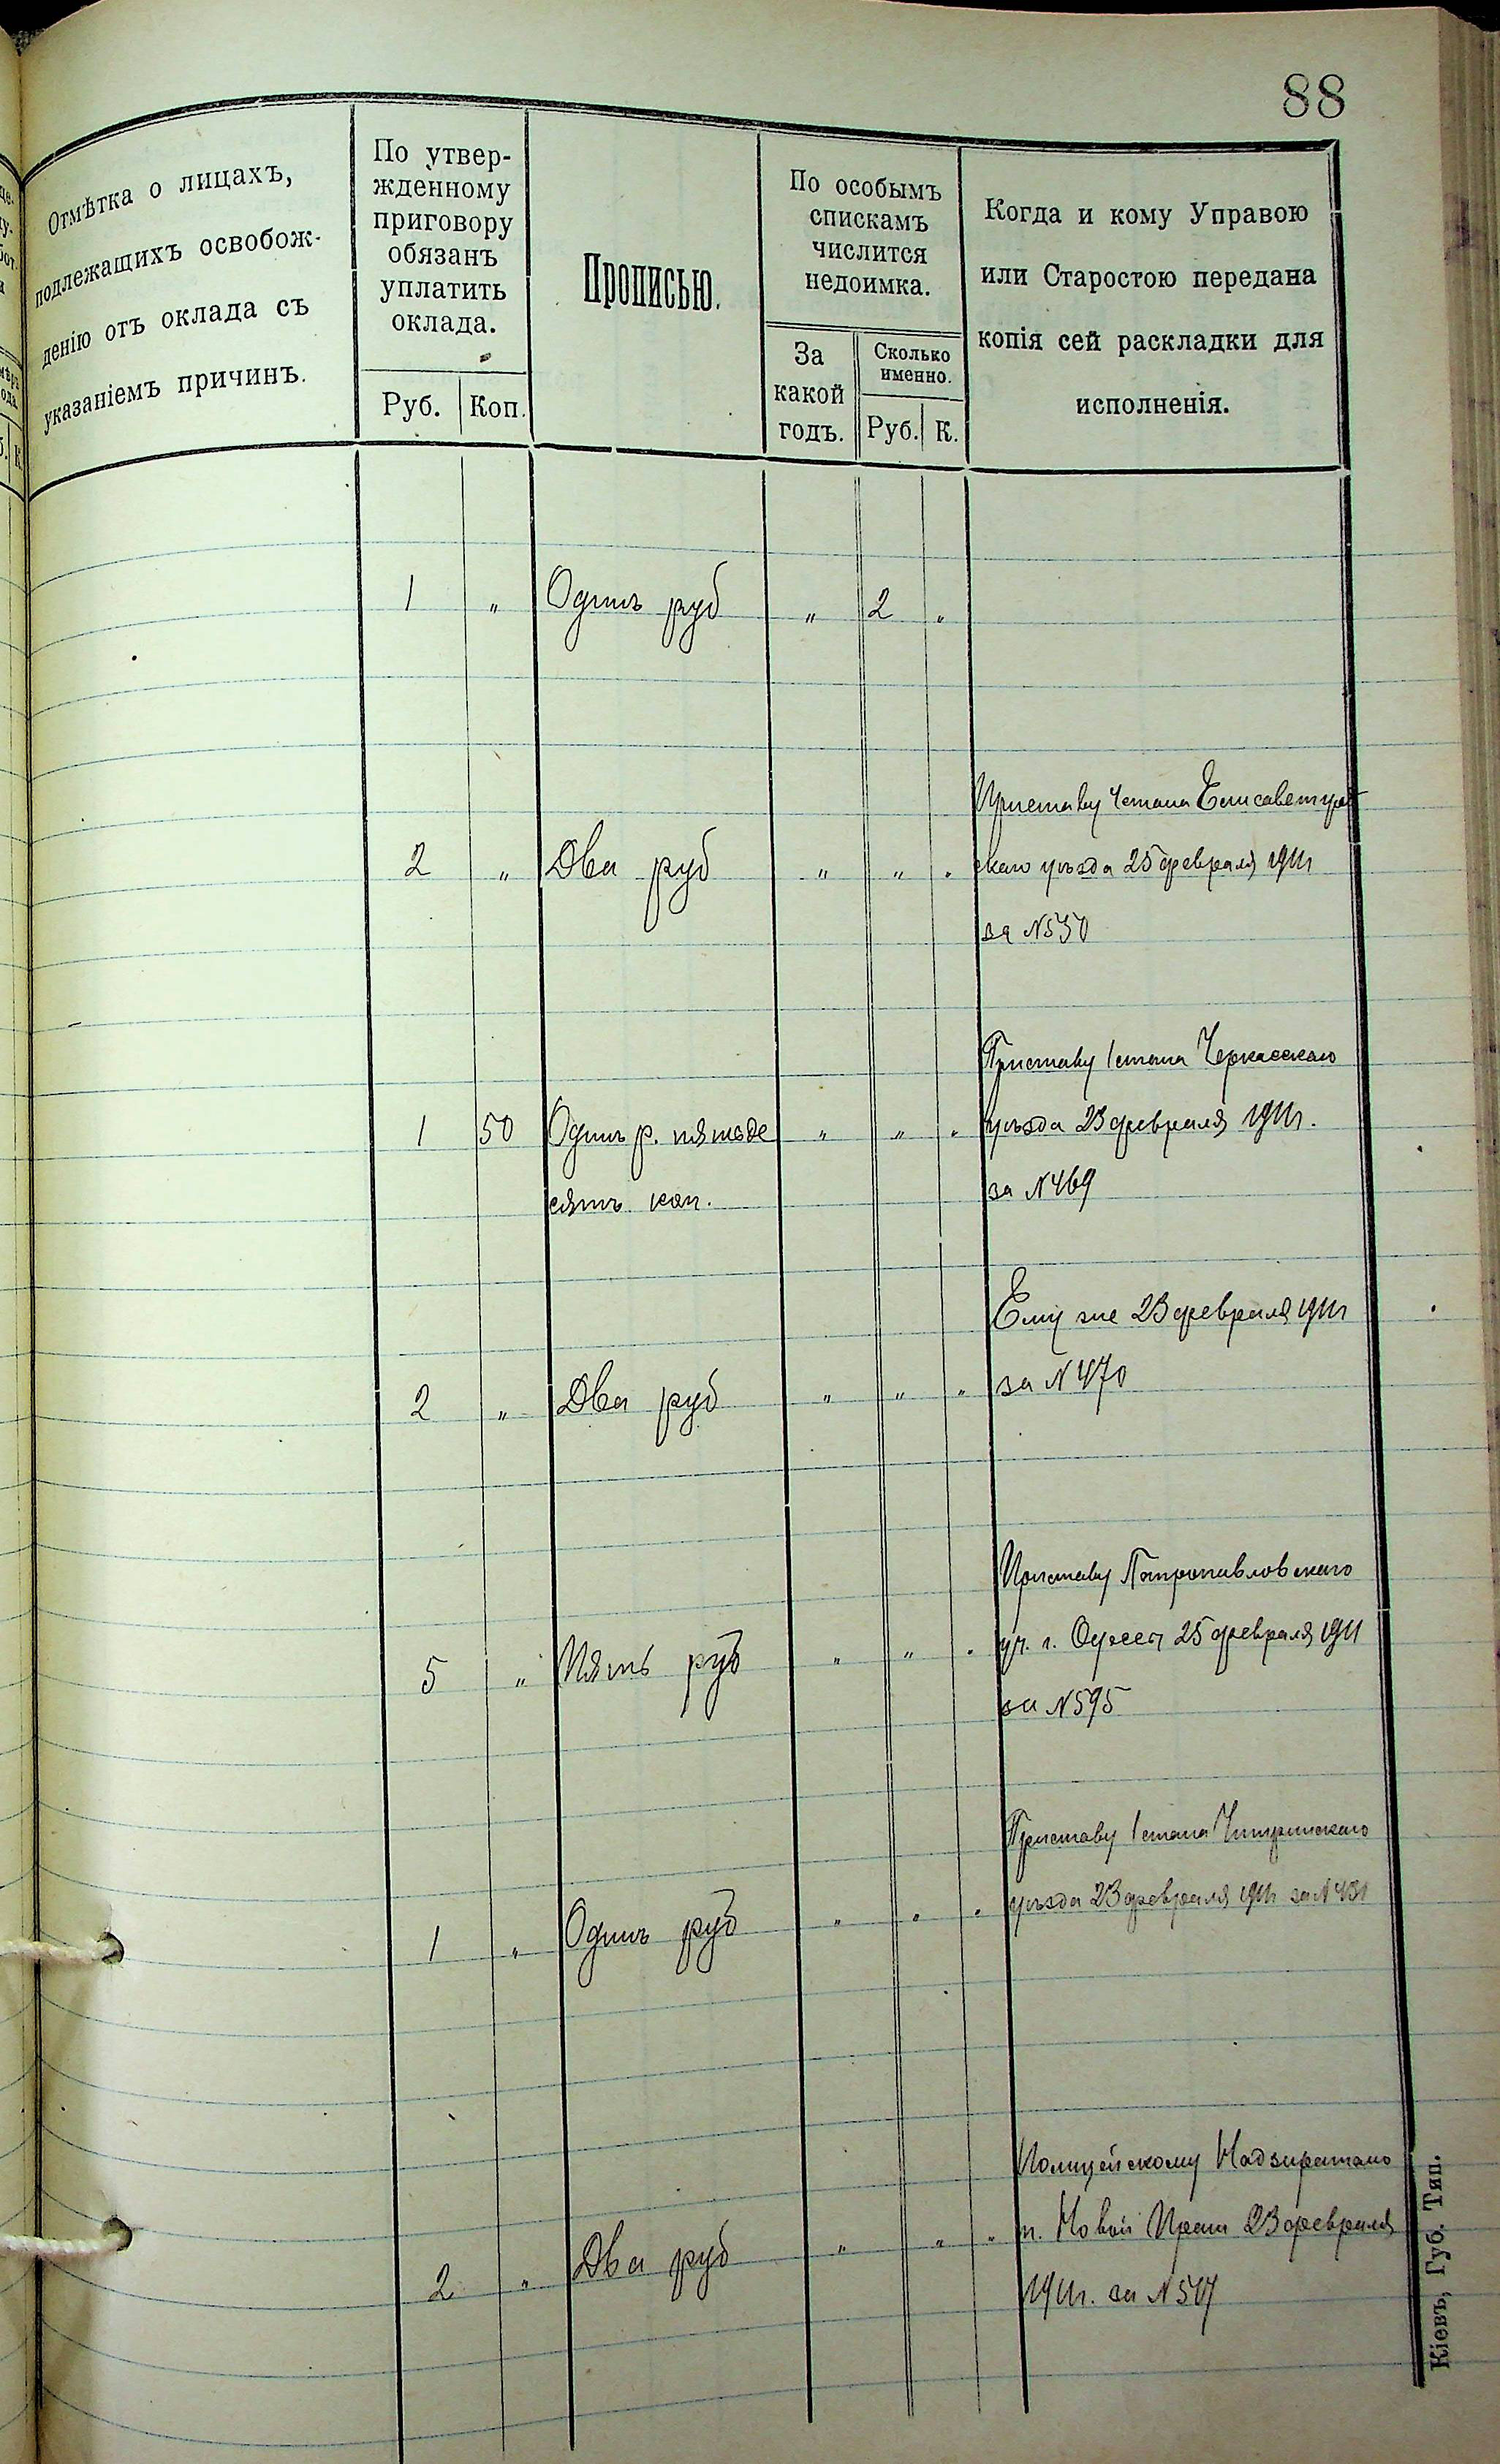 88
Отмѣтка о лицахъ,
подлежащихъ освобож-
денію отъ оклада съ
указаніемъ причинъ.
По утвер-
жденному
приговору
обязанъ
уплатить
оклада.
Руб. Коп.
Прописью.
По особымъ
спискамъ
числится
недоимка.
За
какой
годъ.
Сколько
именно.
Руб. К.
Когда и кому Управою
или Старостою передана
копія сей раскладки для
исполненія.
1 " Одинъ руб " 2 "
Приставу 4 стана Елисаветград
2 " Два руб " " " скаго уѣзда 25 февраля 1911 г
за N 530
Приставу 1 стана Черкасскаго
1 50 Одинъ р. пятьде " " " уѣзда 23 февраля 1911 г.
сятъ коп. за N 469
Ему же 23 февраля 1911 г
2 " Два руб " " " за N 470
Приставу Петропавловскаго
5 " Пять руб " " " уч. г. Одессы 25 февраля 1911
за N 595
Приставу 1 стана Чигринскаго
1 " Одинъ руб " " " уѣзда 23 февраля 1911 г за N 431
Полицейскому Надзирателю
2 " Два руб " " " м. Новой Праги 23 февраля
1911 г. за N 517
Кіевъ, Губ. Тип.